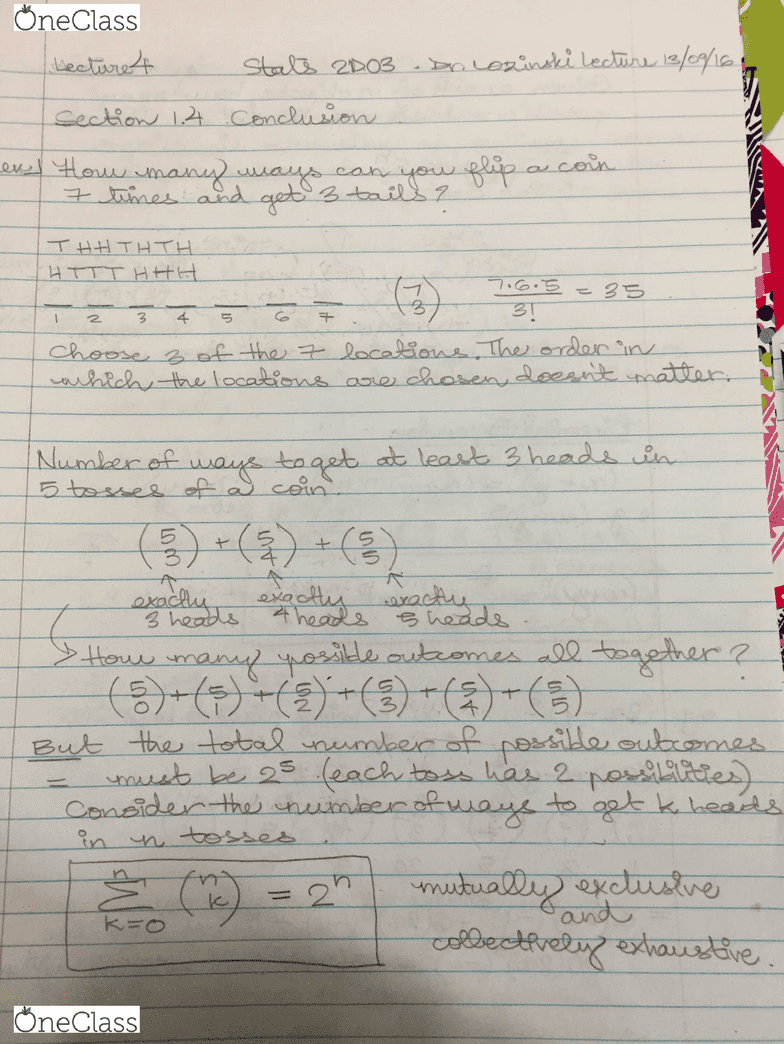 OneClass
Lecture 4 Stats 2D03 . Dr. Lozinski Lecture 13/09/16
Section 1.4 Conclusion
ex) How many ways can you flip a coin
7 times and get 3 tails?
T H H T H T H
H T T T H H H
1 2 3 4 5 6 7 . (7 3) 7·6·5 / 3! = 35
Choose 3 of the 7 locations. The order in
which the locations are chosen doesn't matter.
Number of ways to get at least 3 heads in
5 tosses of a coin.
(5 3) + (5 4) + (5 5)
↑ ↑ ↖
exactly exactly exactly
3 heads 4 heads 5 heads .
→ How many possible outcomes all together?
(5 0) + (5 1) + (5 2) + (5 3) + (5 4) + (5 5)
But the total number of possible outcomes
= must be 2⁵ (each toss has 2 possibilities)
Consider the number of ways to get k heads
in n tosses .
n ∑ k=0 (n k) = 2ⁿ
mutually exclusive
and
collectively exhaustive.
OneClass